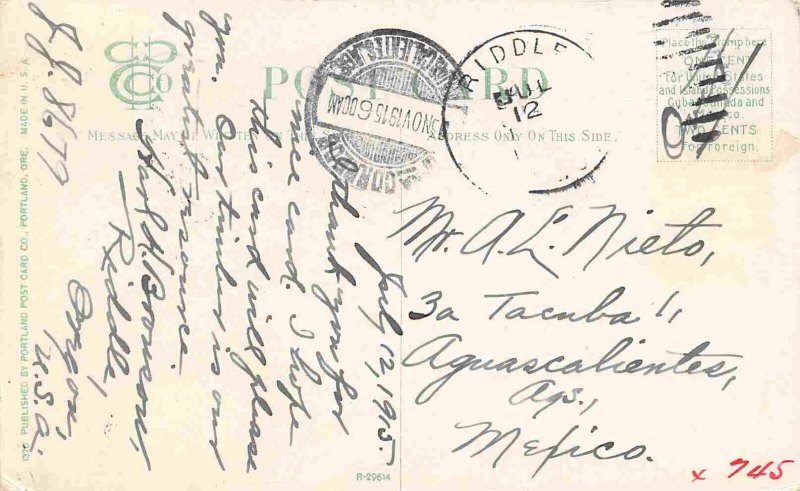 POST CARD
MESSAGE MAY BE WRITTEN ON THIS SIDE. ADDRESS ONLY ON THIS SIDE.
July 12, 1915
Thank you for
nice card. I hope
this card will please
you. Our timber is our
greatest resource.
Riddle,
Oregon,
U.S.A.
L.J. 8677
RIDDLE
JUL
12
AGUASCALIENTES, AGS.
3 NOV 1915 6 00 AM
CORREOS
Place the Stamp here
ONE CENT
for United States
and Island Possessions
Cuba, Canada and
Mexico.
TWO CENTS
For Foreign.
Mr. A. E. Nieto,
3a Tacuba 11,
Aguascalientes,
Ags.,
Mexico.
PUBLISHED BY PORTLAND POST CARD CO., PORTLAND, ORE. MADE IN U.S.A.
R-29614
x 745